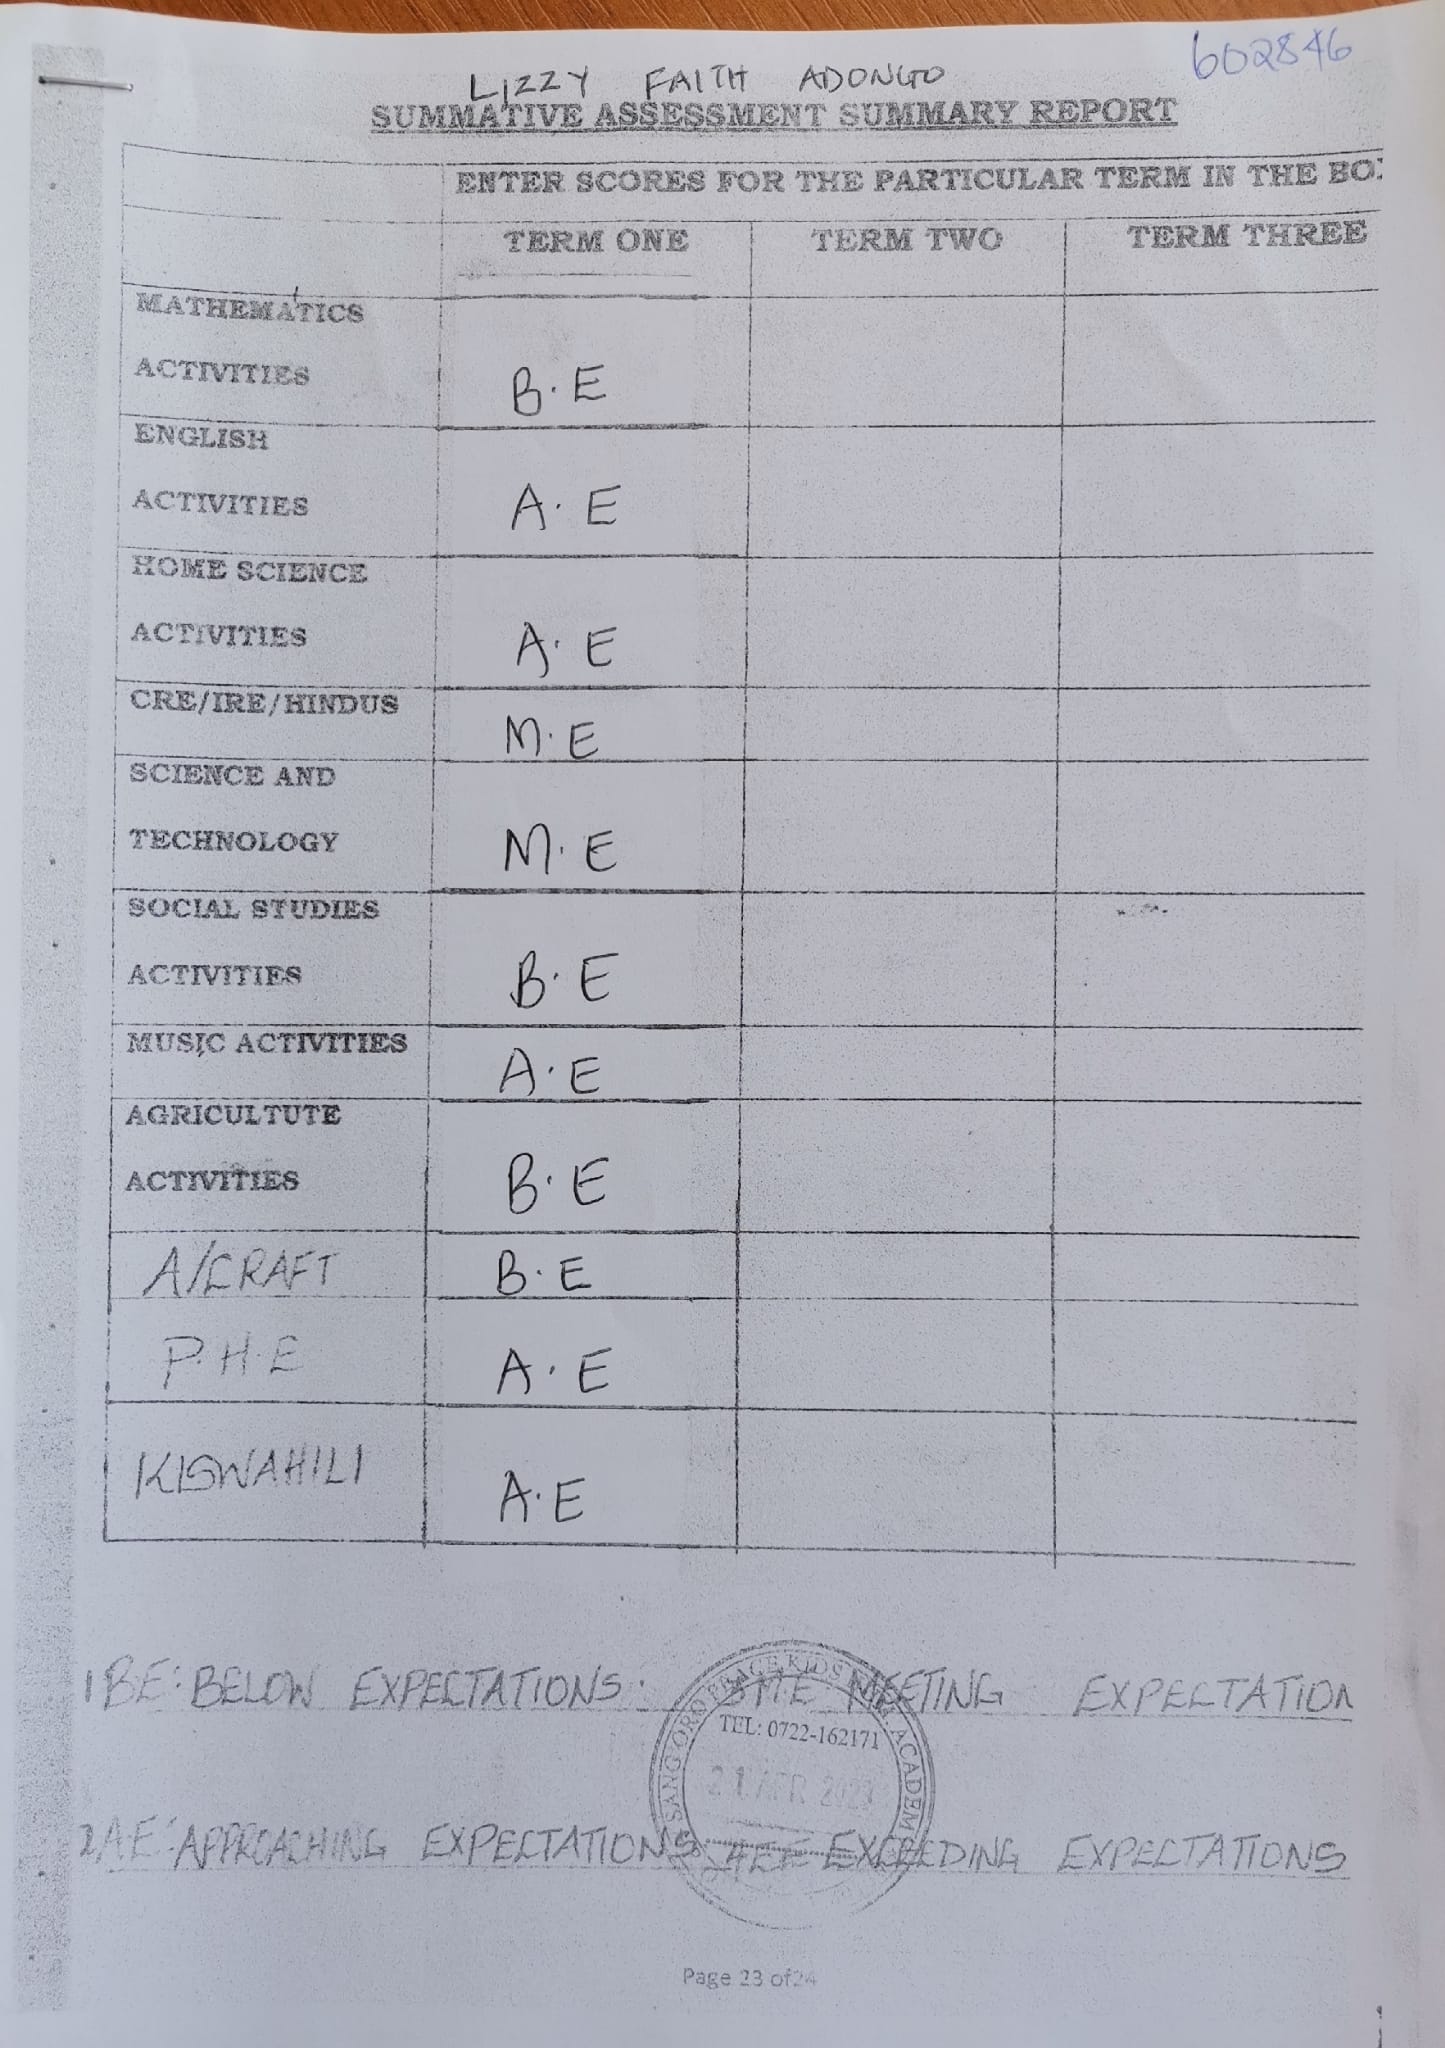 602846
LIZZY FAITH ADONGO
SUMMATIVE ASSESSMENT SUMMARY REPORT
ENTER SCORES FOR THE PARTICULAR TERM IN THE BO
TERM ONE TERM TWO TERM THREE
MATHEMATICS
ACTIVITIES B.E
ENGLISH
ACTIVITIES A.E
HOME SCIENCE
ACTIVITIES A.E
CRE/IRE/HINDUS M.E
SCIENCE AND
TECHNOLOGY M.E
SOCIAL STUDIES
ACTIVITIES B.E
MUSIC ACTIVITIES A.E
AGRICULTUTE
ACTIVITIES B.E
A/CRAFT B.E
P.H.E A.E
KISWAHILI A.E
1 BE: BELOW EXPECTATIONS: 3 M.E MEETING EXPECTATION
TEL: 0722-162171
21 APR 2023
2 A.E: APPROACHING EXPECTATIONS 4 E.E EXCEEDING EXPECTATIONS
Page 23 of 24